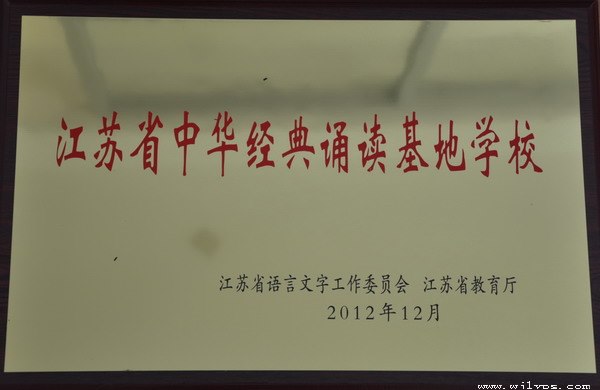 江苏省中华经典诵读基地学校
江苏省语言文字工作委员会 江苏省教育厅
2012年12月
www.wjlyps.com